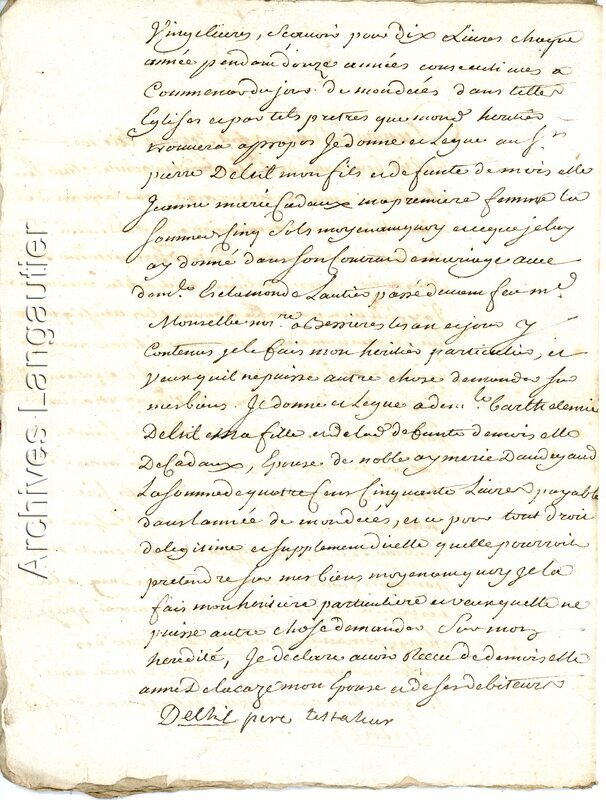 Vingt livres, scavoir pour dix Livres chaque
année pendant douze années consecutives a
Commencer du jour de mon decés dans telles
Eglises et par tels pretres que mond heritier
trouvera apropos Je donne et Legue au Sr
pierre Delhil mon fils et de fante demoiselle
Jeanne marie Cadaux ma premiere femme la
somme Cinq Sols moyenant quoy et ce que je luy
ay donné dans son Contrat de mariage avec
demlle Esclamonde Lautier passé devant feu me
nore a Bessieres les an et jour y
Contenus je le fais mon heritier particulier, et
veux quil ne puisse autre chose demander sur
mes biens. Je donne et Legue a demlle barthelemie
Delhil ma fille et de lad defunte demoiselle
De Cadaux, Epouse de noble aymeric
La somme de quatre Cens Cinquante Livres payable
dans lannée de mon decés, et ce pour tout droit
de legitime et supplement dicelle quelle pourroit
pretendre sur mes biens moyenant quoy je la
fais mon heritiere particuliere et veux quelle ne
puisse autre chose demander Sur mon
heredité, Je declare avoir Receu de demoiselle
anne Delacaze mon Epouse et de ses debiteurs
Delhil pere testateur
Archives Langautier